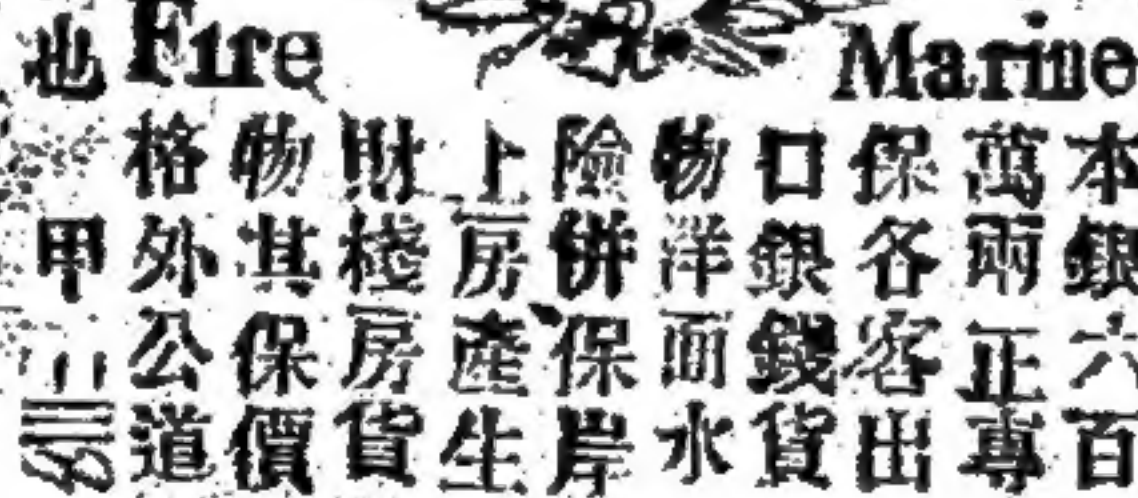 Fire
Marine
本銀六百
萬兩正專
保各客出
口銀錢貨
物洋面水
險併保岸
上房產生
財棧房貨
物其保價
格外公道
也甲